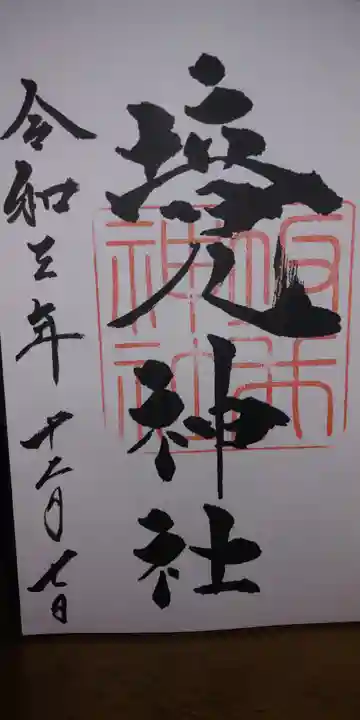 境神社
令和三年十二月七日